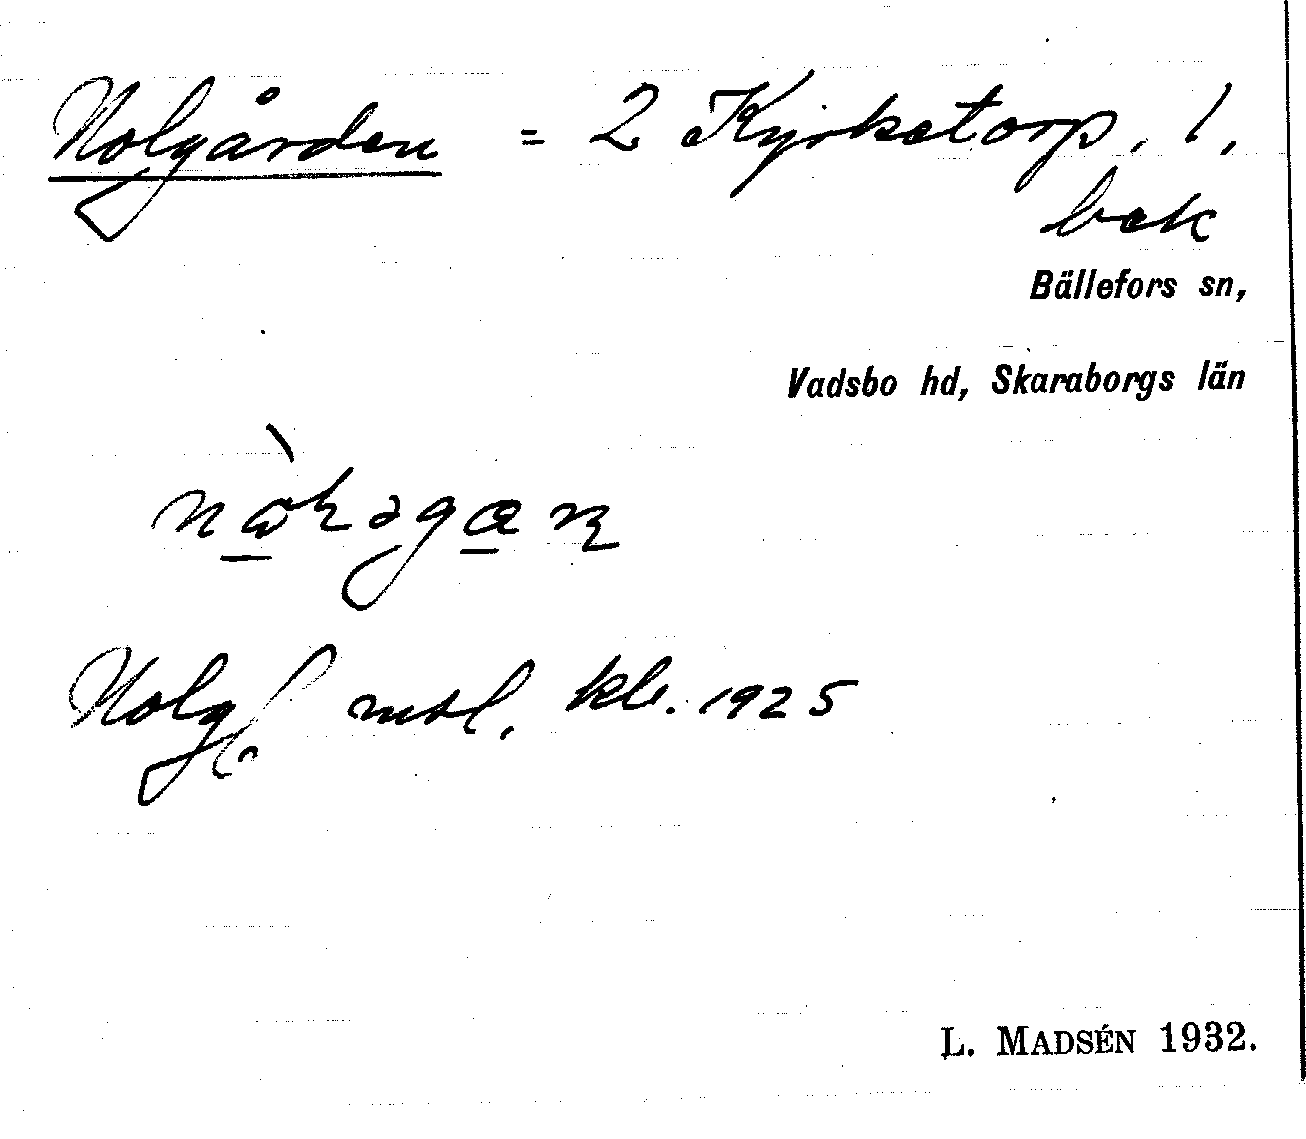 Nolgården = 2 Kyrketorp, 1,
bek
Bällefors sn,
Vadsbo hd, Skaraborgs län
Nolg mtl. kb. 1925
L. MADSÉN 1932.